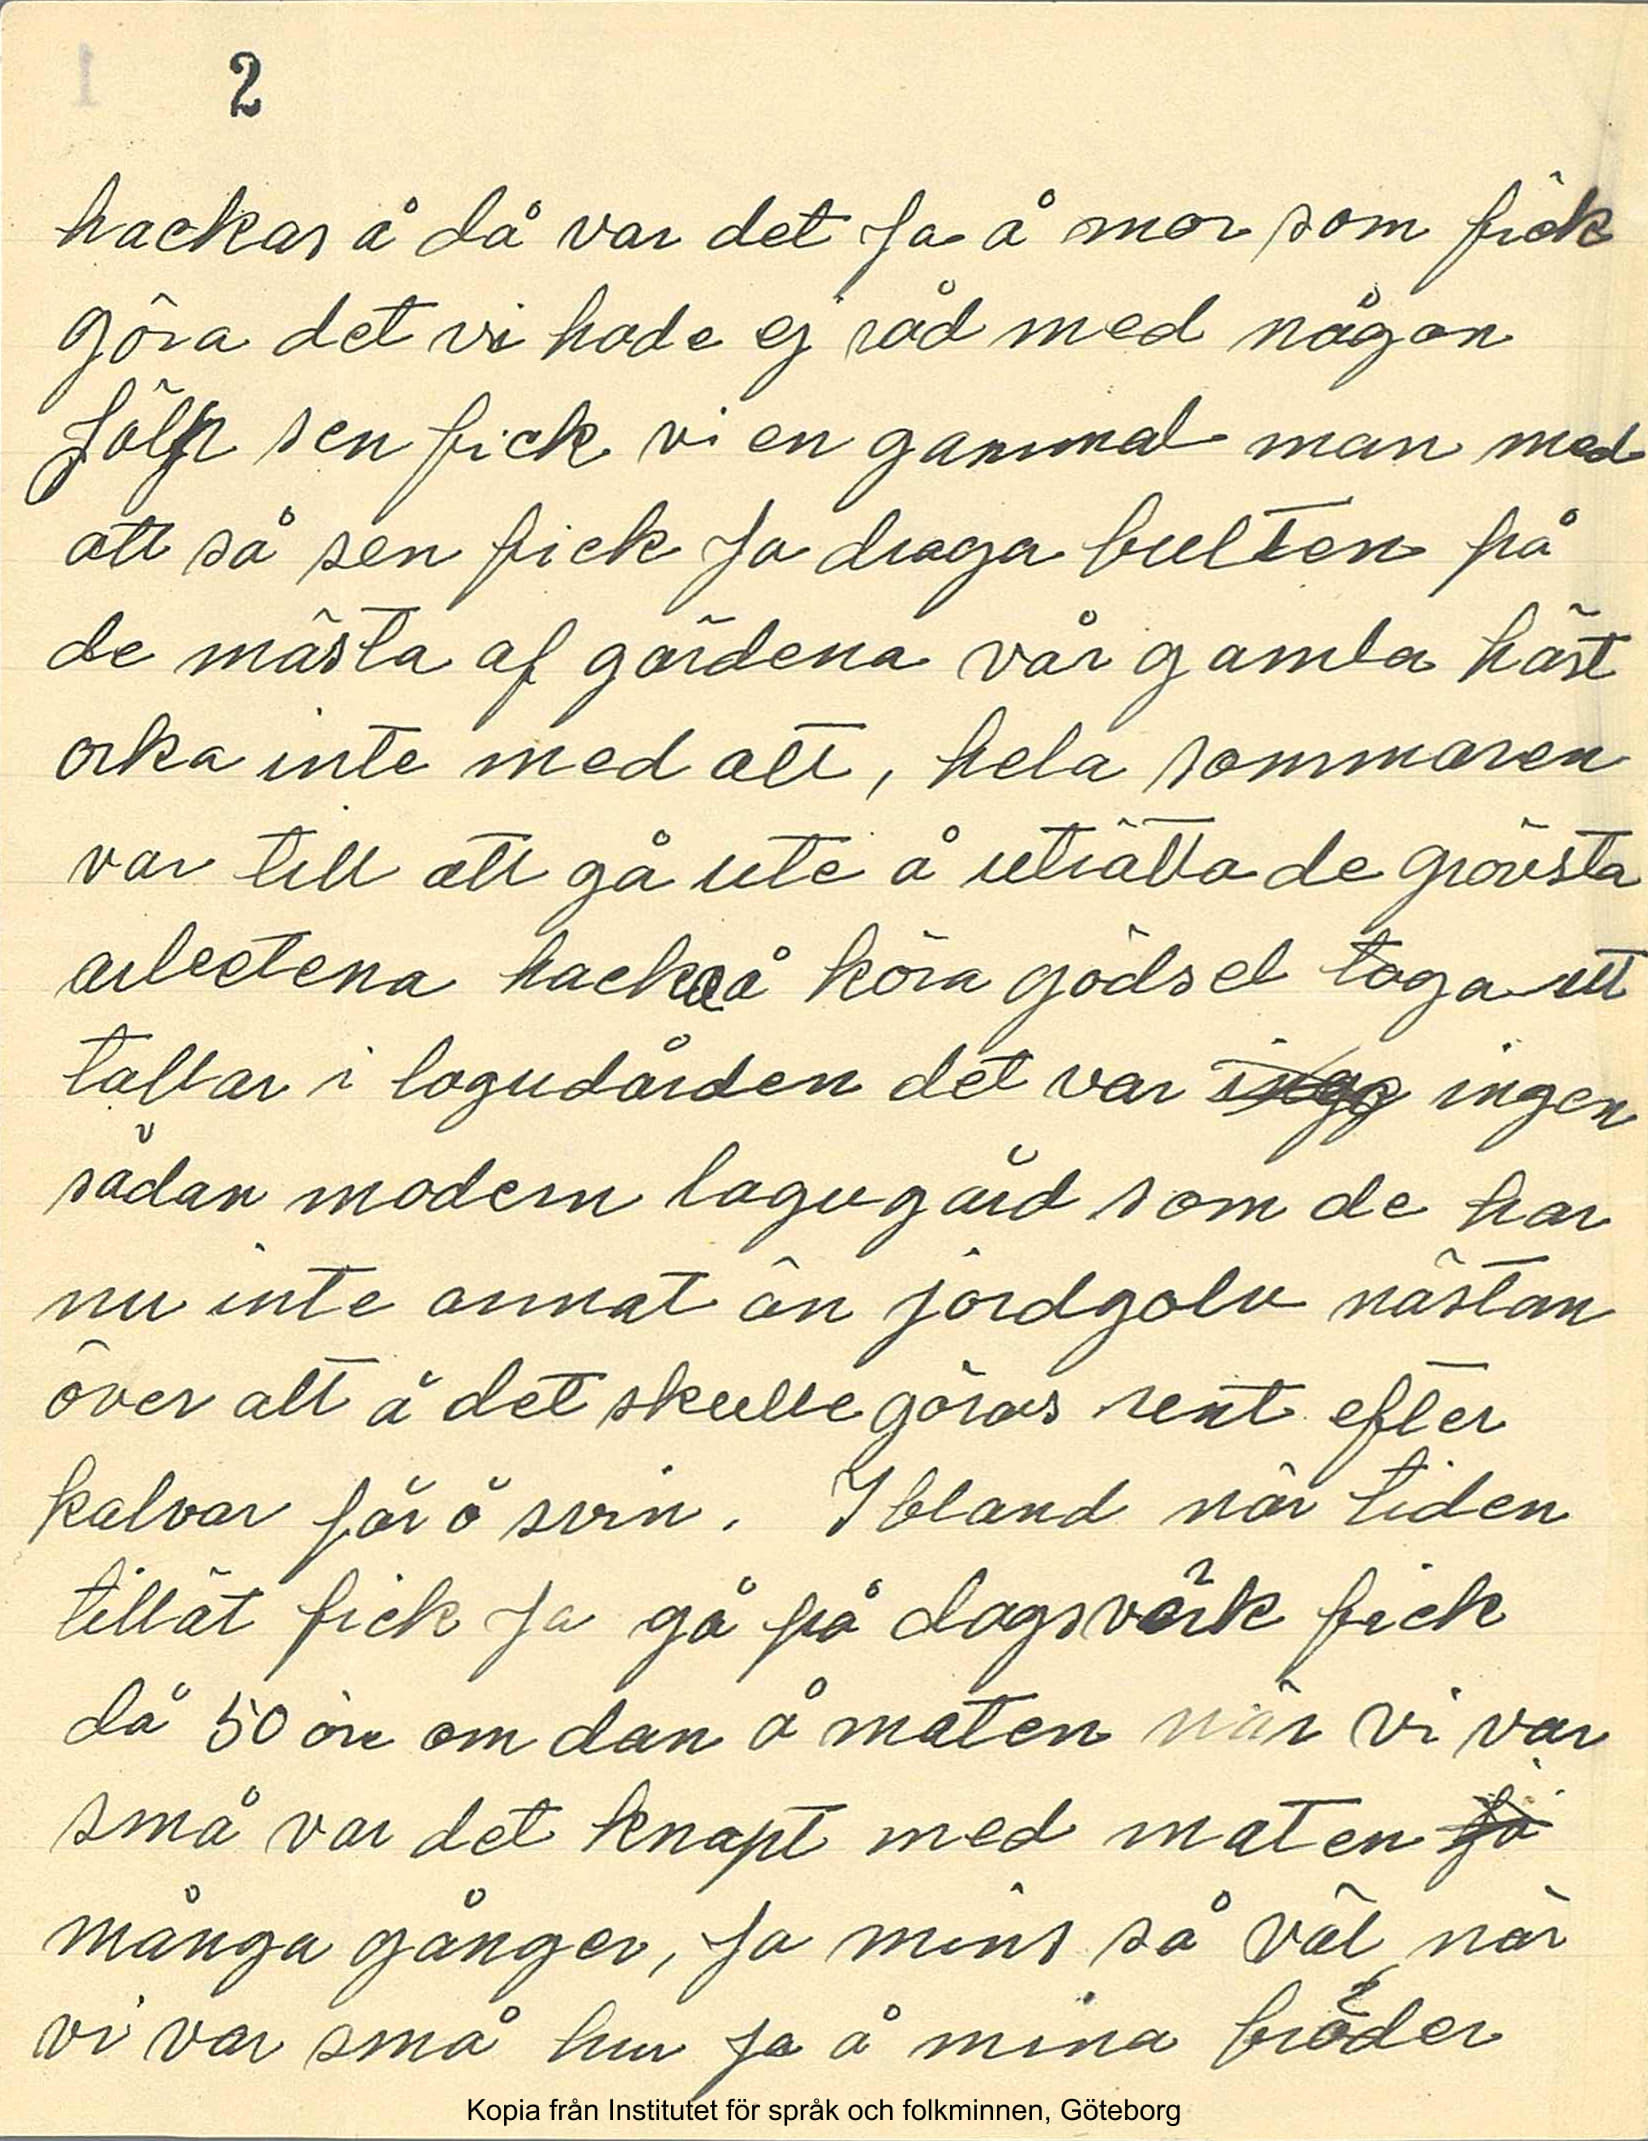 2
hackas å då var det Ja å mor som fick
göra det vi hade ej råd med någon
Jälp sen fick vi en gammal man med
att så sen fick Ja draga bulten på
de mästa af gärdena vår gamla häst
orka inte med alt, hela sommaren
var till att gå ute å uträtta de grövsta
arbetena hacka å köra gödsel taga ut
tallar i lagudården det var ingen
sådan modern lagugård som de har
nu inte annat än jordgolv nästan
över alt å det skulle göras rent efter
kalvar får å svin. Ibland när tiden
tillät fick Ja gå på dagsvärk fick
då 50 öre om dan å maten när vi var
små var det knapt med maten
många gånger, Ja mins så väl när
vi var små hur Ja å mina bröder
Kopia från Institutet för språk och folkminnen, Göteborg